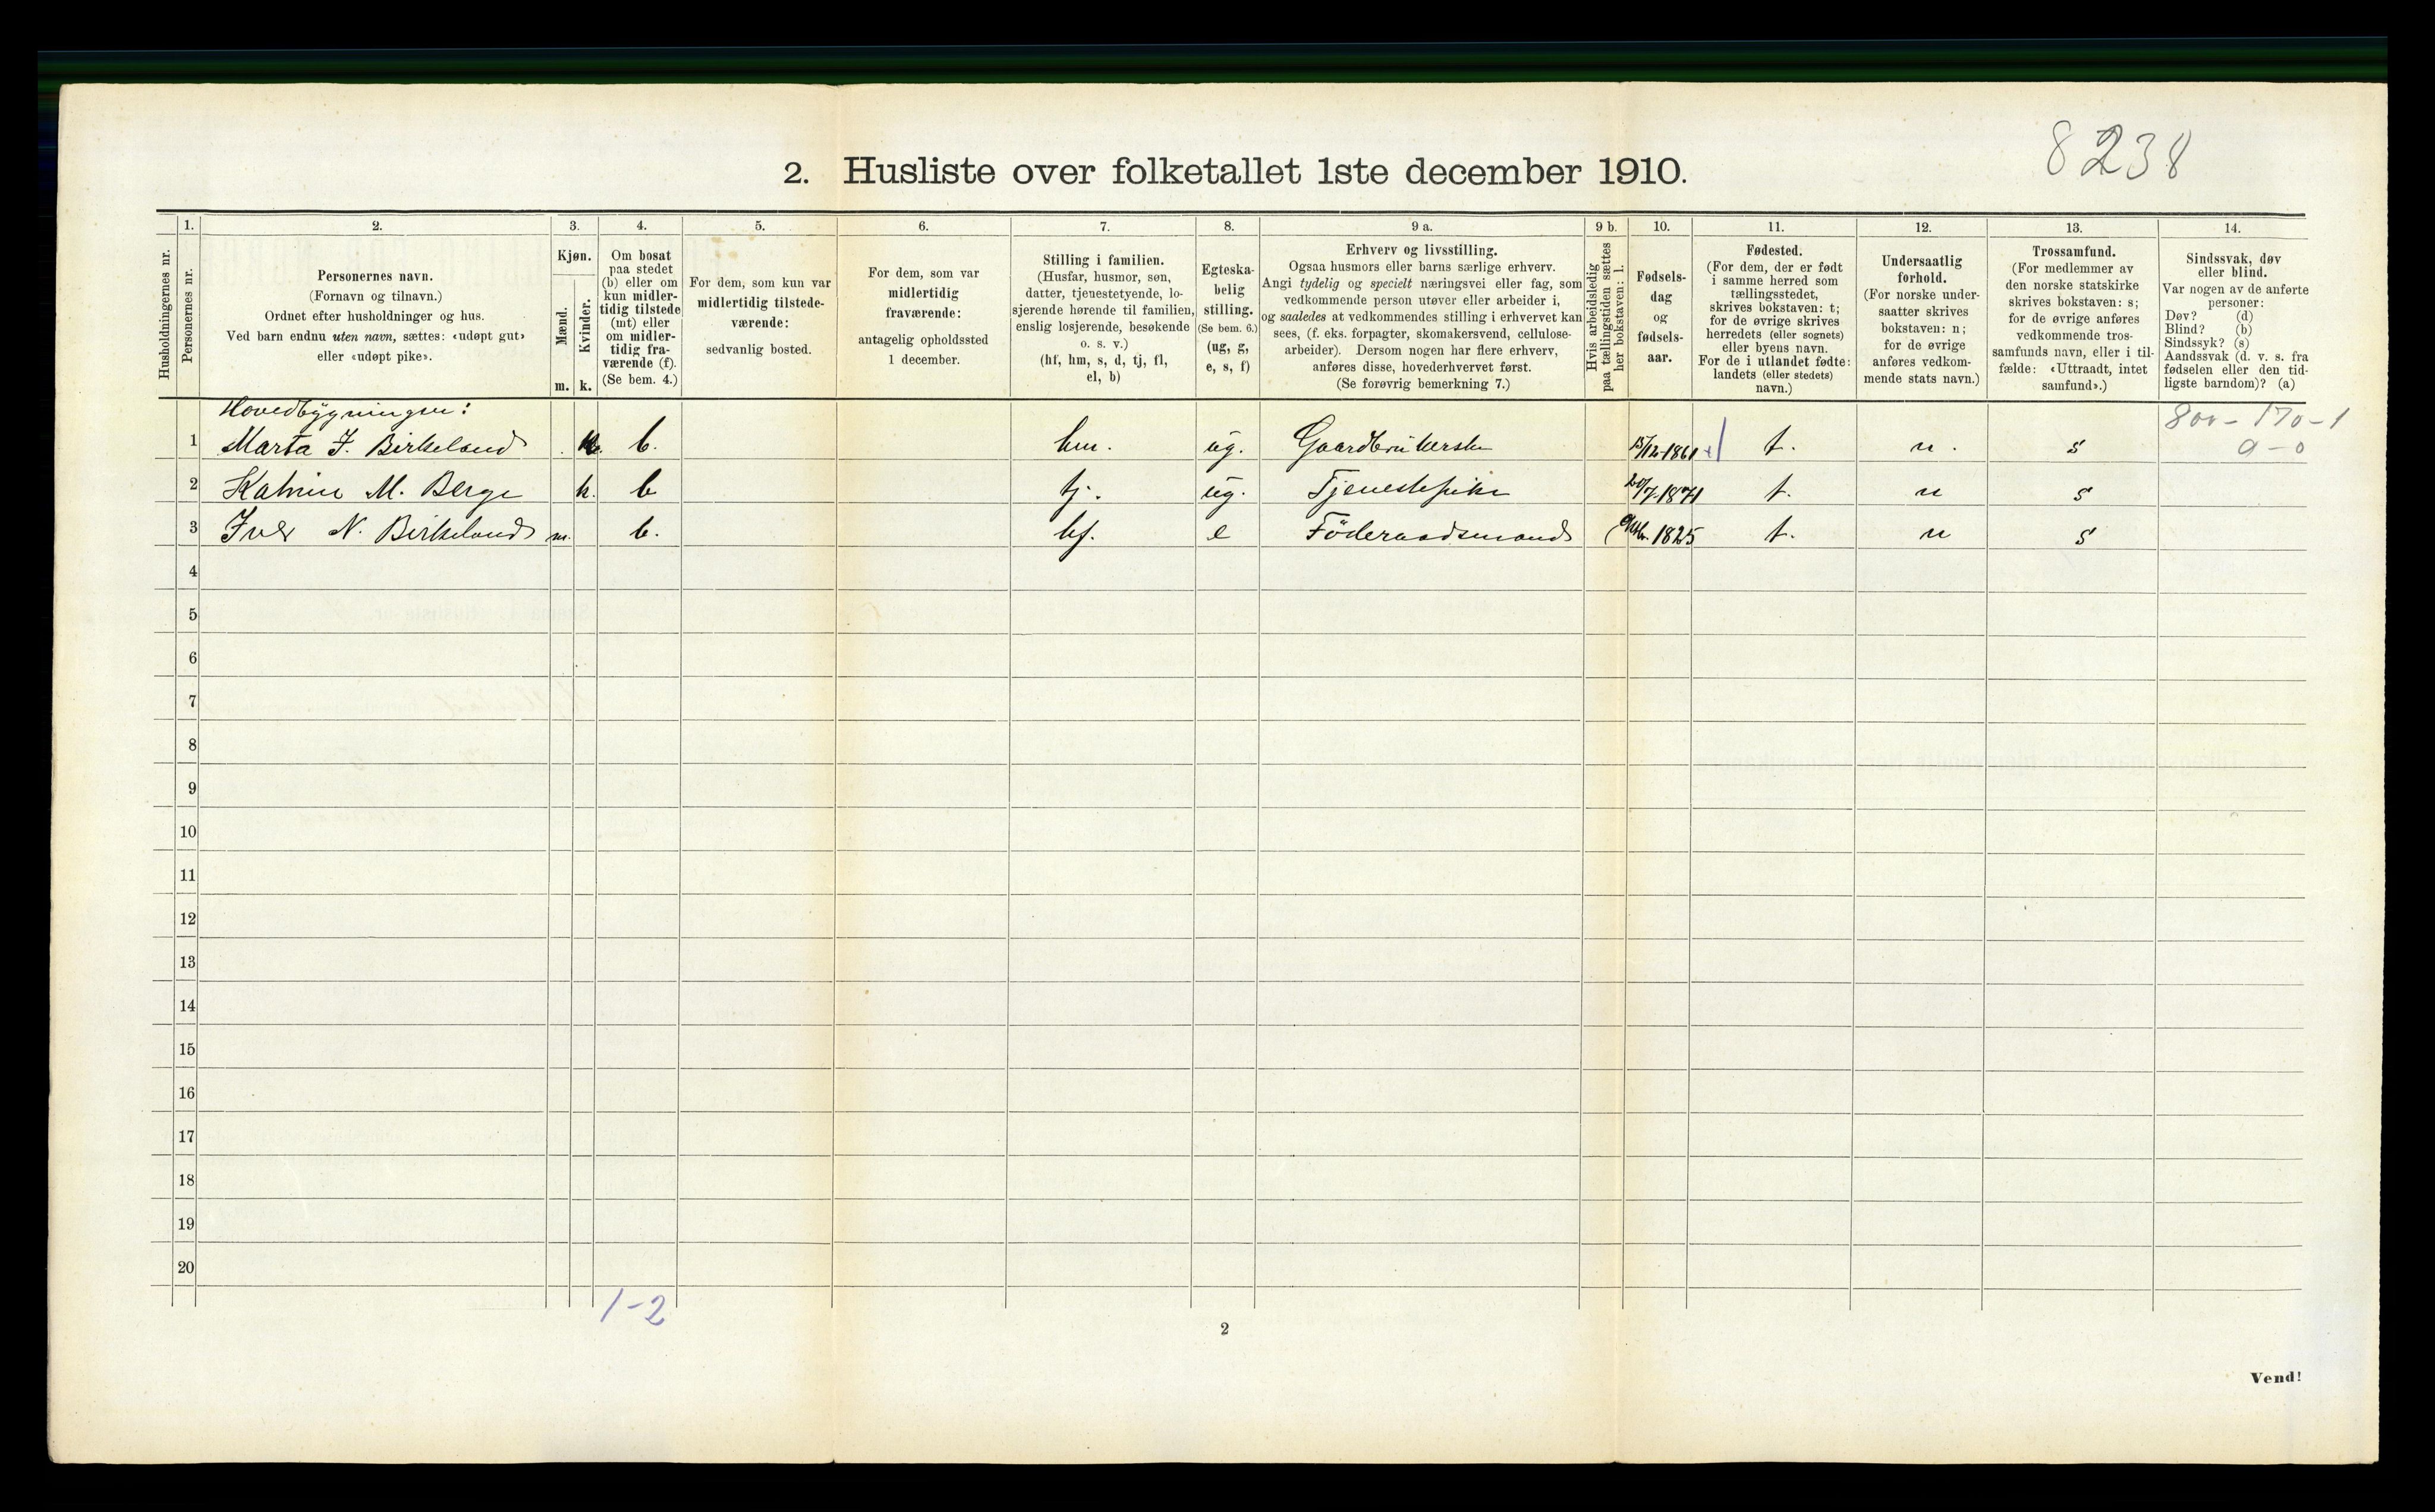 8238
2. Husliste over folketallet 1ste december 1910.
Husholdningernes nr.
1.
Personernes nr.
2.
Personernes navn.
(Fornavn og tilnavn.)
Ordnet efter husholdninger og hus.
Ved barn endnu uten navn, sættes: «udøpt gut»
eller «udøpt pike».
3.
Kjøn.
Mænd.
Kvinder.
m. k.
4.
Om bosat
paa stedet
(b) eller om
kun midler-
tidig tilstede
(mt) eller
om midler-
tidig fra-
værende (f).
(Se bem. 4.)
5.
For dem, som kun var
midlertidig tilstede-
værende:
sedvanlig bosted.
6.
For dem, som var
midlertidig
fraværende:
antagelig opholdssted
1 december.
7.
Stilling i familien.
(Husfar, husmor, søn,
datter, tjenestetyende, lo-
sjerende hørende til familien,
enslig losjerende, besøkende
o. s. v.)
(hf, hm, s, d, tj, fl,
el, b)
8.
Egteska-
belig
stilling.
(Se bem. 6.)
(ug, g,
e, s, f)
9 a.
Erhverv og livsstilling.
Ogsaa husmors eller barns særlige erhverv.
Angi tydelig og specielt næringsvei eller fag, som
vedkommende person utøver eller arbeider i,
og saaledes at vedkommendes stilling i erhvervet kan
sees, (f. eks. forpagter, skomakersvend, cellulose-
arbeider). Dersom nogen har flere erhverv,
anføres disse, hovederhvervet først.
(Se forøvrig bemerkning 7.)
9 b.
Hvis arbeidsledig
paa tællingstiden sættes
her bokstaven: l.
10.
Fødsels-
dag
og
fødsels-
aar.
11.
Fødested.
(For dem, der er født
i samme herred som
tællingsstedet,
skrives bokstaven: t;
for de øvrige skrives
herredets (eller sognets)
eller byens navn.
For de i utlandet fødte:
landets (eller stedets)
navn.)
12.
Undersaatlig
forhold.
(For norske under-
saatter skrives
bokstaven: n;
for de øvrige
anføres vedkom-
mende stats navn.)
13.
Trossamfund.
(For medlemmer av
den norske statskirke
skrives bokstaven: s;
for de øvrige anføres
vedkommende tros-
samfunds navn, eller i til-
fælde: «Uttraadt, intet
samfund».)
14.
Sindssvak, døv
eller blind.
Var nogen av de anførte
personer:
Døv? (d)
Blind? (b)
Sindssyk? (s)
Aandssvak (d. v. s. fra
fødselen eller den tid-
ligste barndom)? (a)
Hovedbygningen:
800 - 170 - 1
0 - 0
1 Marta I. Birkeland k. b. hm. ug. Gaardbrukerske 15/12-1861 t. n. s
2 Katrine M. Berge k. b tj. ug. Tjenestepike 20/7-1871 t. n s
3 Iver N. Birkeland m. b. hf. e Föderaadsmand 1825 t. n s
4
5
6
7
8
9
10
11
12
13
14
15
16
17
18
19
20
1-2
2
Vend!